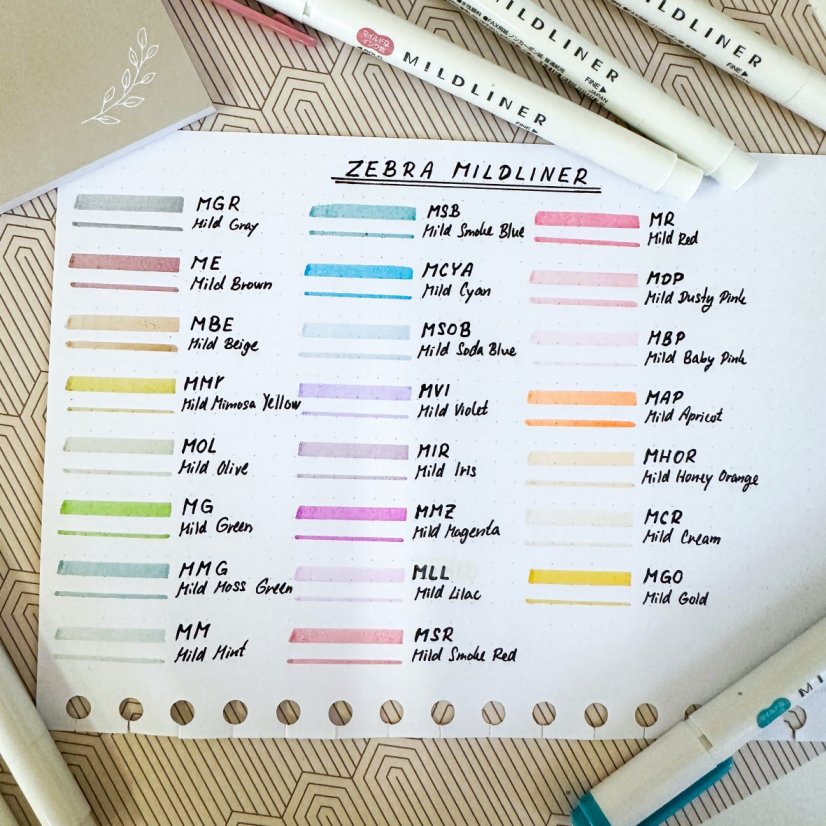 マイルドQ
MILDLINER
FINE▶
MILDLINER
FINE▶
JAPAN
MILDLINER
FINE▶
ZEBRA MILDLINER
MGR
Mild Gray
ME
Mild Brown
MBE
Mild Beige
MMY
Mild Mimosa Yellow
MOL
Mild Olive
MG
Mild Green
MMG
Mild Moss Green
MM
Mild Mint
MSB
Mild Smoke Blue
MCYA
Mild Cyan
MSOB
Mild Soda Blue
MVI
Mild Violet
MIR
Mild Iris
MMZ
Mild Magenta
MLL
Mild Lilac
MSR
Mild Smoke Red
MR
Mild Red
MDP
Mild Dusty Pink
MBP
Mild Baby Pink
MAP
Mild Apricot
MHOR
Mild Honey Orange
MCR
Mild Cream
MGO
Mild Gold